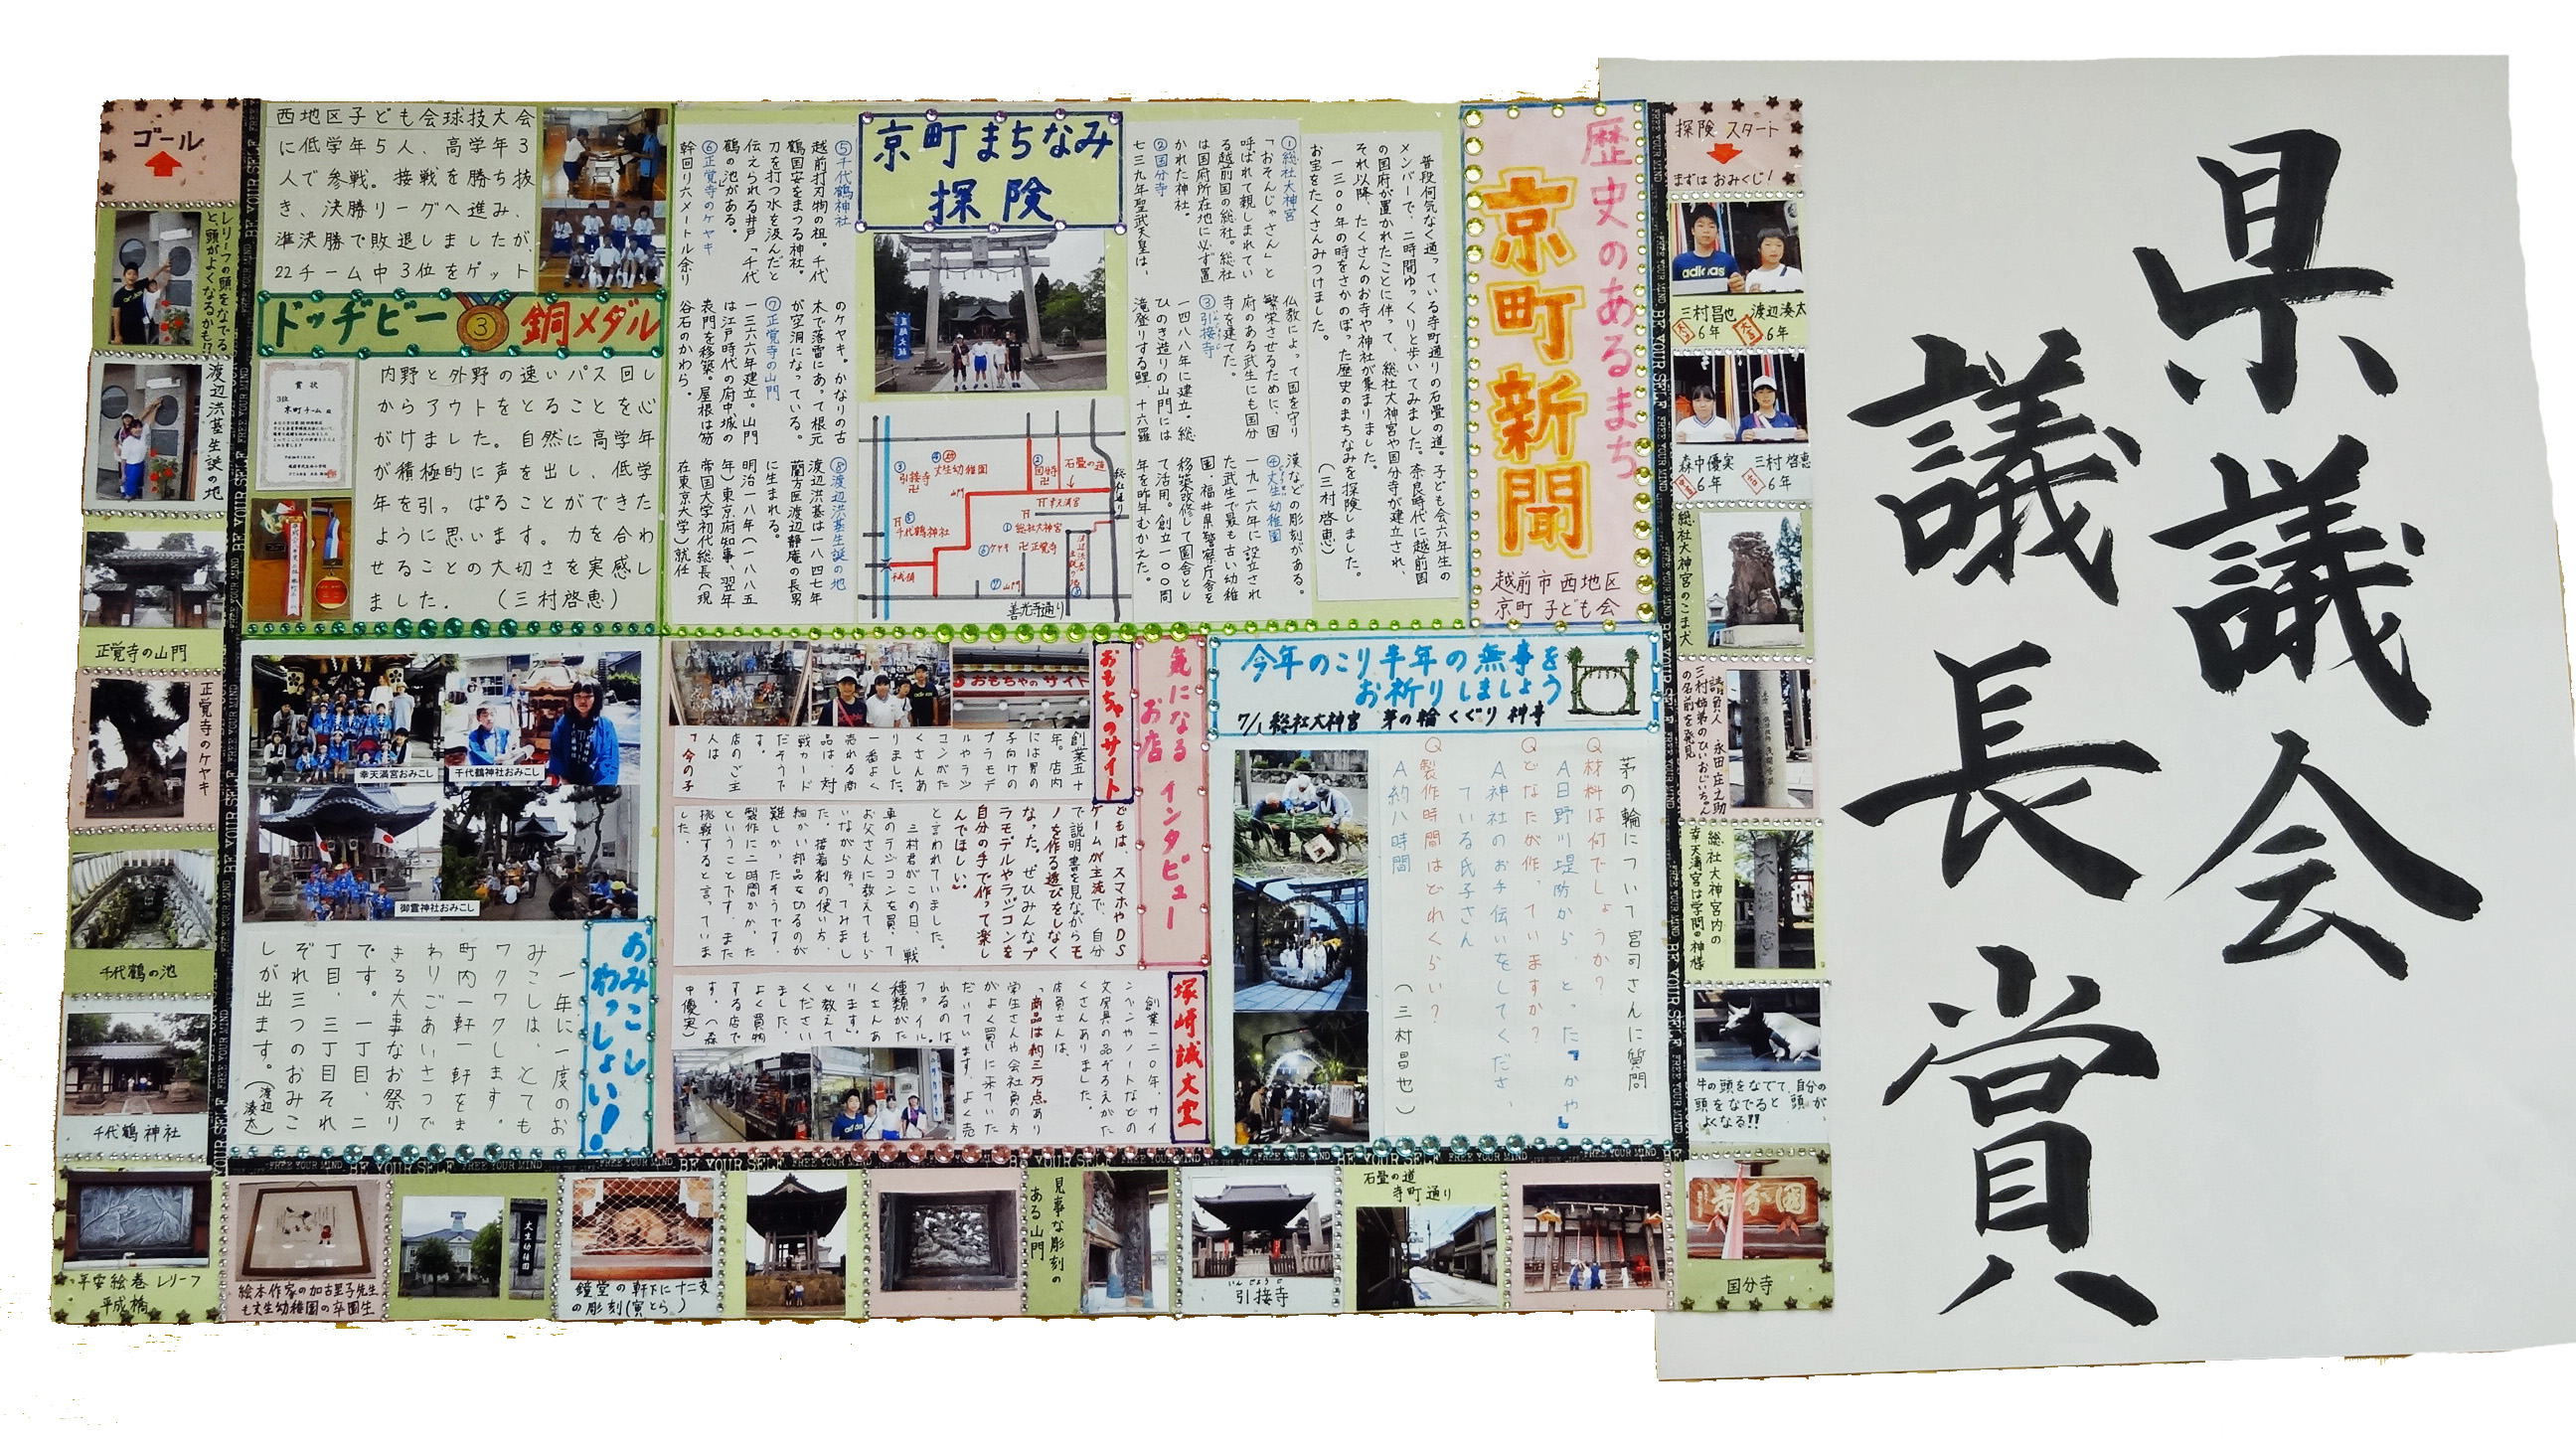 県議会
議長賞
歴史のあるまち
京町新聞
越前市西地区
京町子ども会
京町まちなみ
探険
普段何気なく通っている寺町通りの石畳の道。子ども会六年生の
メンバーで、二時間ゆっくりと歩いてみました。奈良時代に越前国
の国府が置かれたことに伴って、総社大神宮や国分寺が建立され、
それ以降、たくさんのお寺や神社が集まりました。
一三〇〇年の時をさかのぼった歴史のまちなみを探険しました。
お宝をたくさんみつけました。
(三村啓恵)
①総社大神宮
「おそんじゃさん」と
呼ばれて親しまれてい
る越前国の総社。総社
は国府所在地に必ず置
かれた神社。
②国分寺
七三九年聖武天皇は、
仏教によって国を守り
繁栄させるために、国
府のある武生にも国分
寺を建てた。
③引接寺
一四八八年に建立。総
ひのき造りの山門には
滝登りする鯉、十六羅
漢などの彫刻がある。
④丈生幼稚園
一九一六年に設立され
た武生で最も古い幼稚
園。福井県警察庁舎を
移築改修して園舎とし
て活用。創立一〇〇周
年を昨年むかえた。
⑤千代鶴神社
越前打刃物の祖。千代
鶴国安をまつる神社。
刀を打つ水を汲んだと
伝えられる井戸「千代
鶴の池」がある。
⑥正覚寺のケヤキ
幹回り六メートル余り
のケヤキ。かなりの古
木で落雷にあって根元
が空洞になっている。
⑦正覚寺の山門
一三六六年建立。山門
は江戸時代の府中城の
表門を移築。屋根は笏
谷石のかわら。
⑧渡辺洪基生誕の地
渡辺洪基は一八四七年
蘭方医渡辺静庵の長男
に生まれる。
明治一八年(一八八五
年)東京府知事、翌年
帝国大学初代総長(現
在東京大学)就任
丈生幼稚園
引接寺
山門
国分寺
石畳の道
総社通り
幸天満宮
千代鶴神社
総社大神宮
ケヤキ
正覚寺
山門
善光寺通り
西地区子ども会球技大会
に低学年5人、高学年3
人で参戦。接戦を勝ち抜
き、決勝リーグへ進み、
準決勝で敗退しましたが、
22チーム中3位をゲット
ドッヂビー 3 銅メダル
賞状
3位
京町チーム 殿
内野と外野の速いパス回し
からアウトをとることを心
がけました。自然に高学年
が積極的に声を出し、低学
年を引っぱることができた
ように思います。力を合わ
せることの大切さを実感し
ました。 (三村啓恵)
今年のこり半年の無事を
お祈りしましょう
7/1 総社大神宮 茅の輪くぐり神寺
茅の輪について宮司さんに質問
Q材料は何でしょうか?
A日野川堤防からとった「かや」
Qどなたが作っていますか?
A神社のお手伝いをしてくださっ
ている氏子さん
Q製作時間はどれくらい?
A約八時間
(三村昌也)
気になる
お店
インタビュー
おもちゃのサイト
おもちゃのサイト
創業五十
年。店内
には男の
子向けの
プラモデ
ルやラジ
コンがた
くさんあ
りました。
一番よく
売れる商
品は、対
戦カード
だそうで
す。
店のご主
人は
「今の子
どもは、スマホやDS
ゲームが主流で、自分
で説明書を見ながらモ
ノを作る遊びをしなく
なった。ぜひみんなプ
ラモデルやラジコンを
自分の手で作って楽し
んでほしい」
と言われていました。
三村君がこの日、戦
車のラジコンを買って
お父さんに教えてもら
いながら作ってみまし
た。接着剤の使い方、
細かい部品を切るのが
難しかったそうです。
製作に二時間かかった
ということです。また
挑戦すると言っていま
した。
塚崎誠文堂
創業一二〇年、サイ
ンペンやノートなどの
文房具の品ぞろえがた
くさんありました。
店員さんは、
「商品は約三万点あり
学生さんや会社員の方
がよく買いに来ていた
だいています。よく売
れるのは
ファイル。
種類がた
くさんあ
ります」
と教えて
ください
ました。
よく買物
する店で
す。(森
中優実)
幸天満宮おみこし
千代鶴神社おみこし
御霊神社おみこし
おみこし
わっしょい!
一年に一度のお
みこしは、とても
ワクワクします。
町内一軒一軒をま
わりごあいさつで
きる大事なお祭り
です。一丁目、二
丁目、三丁目それ
ぞれ三つのおみこ
しが出ます。(渡辺湊太)
探険スタート
まずはおみくじ!
adidas
三村昌也 6年
渡辺湊太 6年
森中優実 6年
三村啓恵 6年
総社大神宮のこま犬
請負人 永田庄之助
三村姉弟のひいおじいちゃん
の名前を発見
総社大神宮内の
幸天満宮は学問の神様
天満宮
牛の頭をなでて、自分の
頭をなでると頭が
よくなる!!
国分寺
石畳の道
寺町通り
いんじょうじ
引接寺
見事な彫刻の
ある山門
鐘堂の軒下に十二支
の彫刻(寅とら)
絵本作家の加古里子先生
も丈生幼稚園の卒園生
平安絵巻レリーフ
平成橋
千代鶴神社
千代鶴の池
正覚寺のケヤキ
正覚寺の山門
渡辺洪基生誕の地
レリーフの頭をなでる
と、頭がよくなるかも!?
ゴール
BE YOUR SELF FREE YOUR MIND